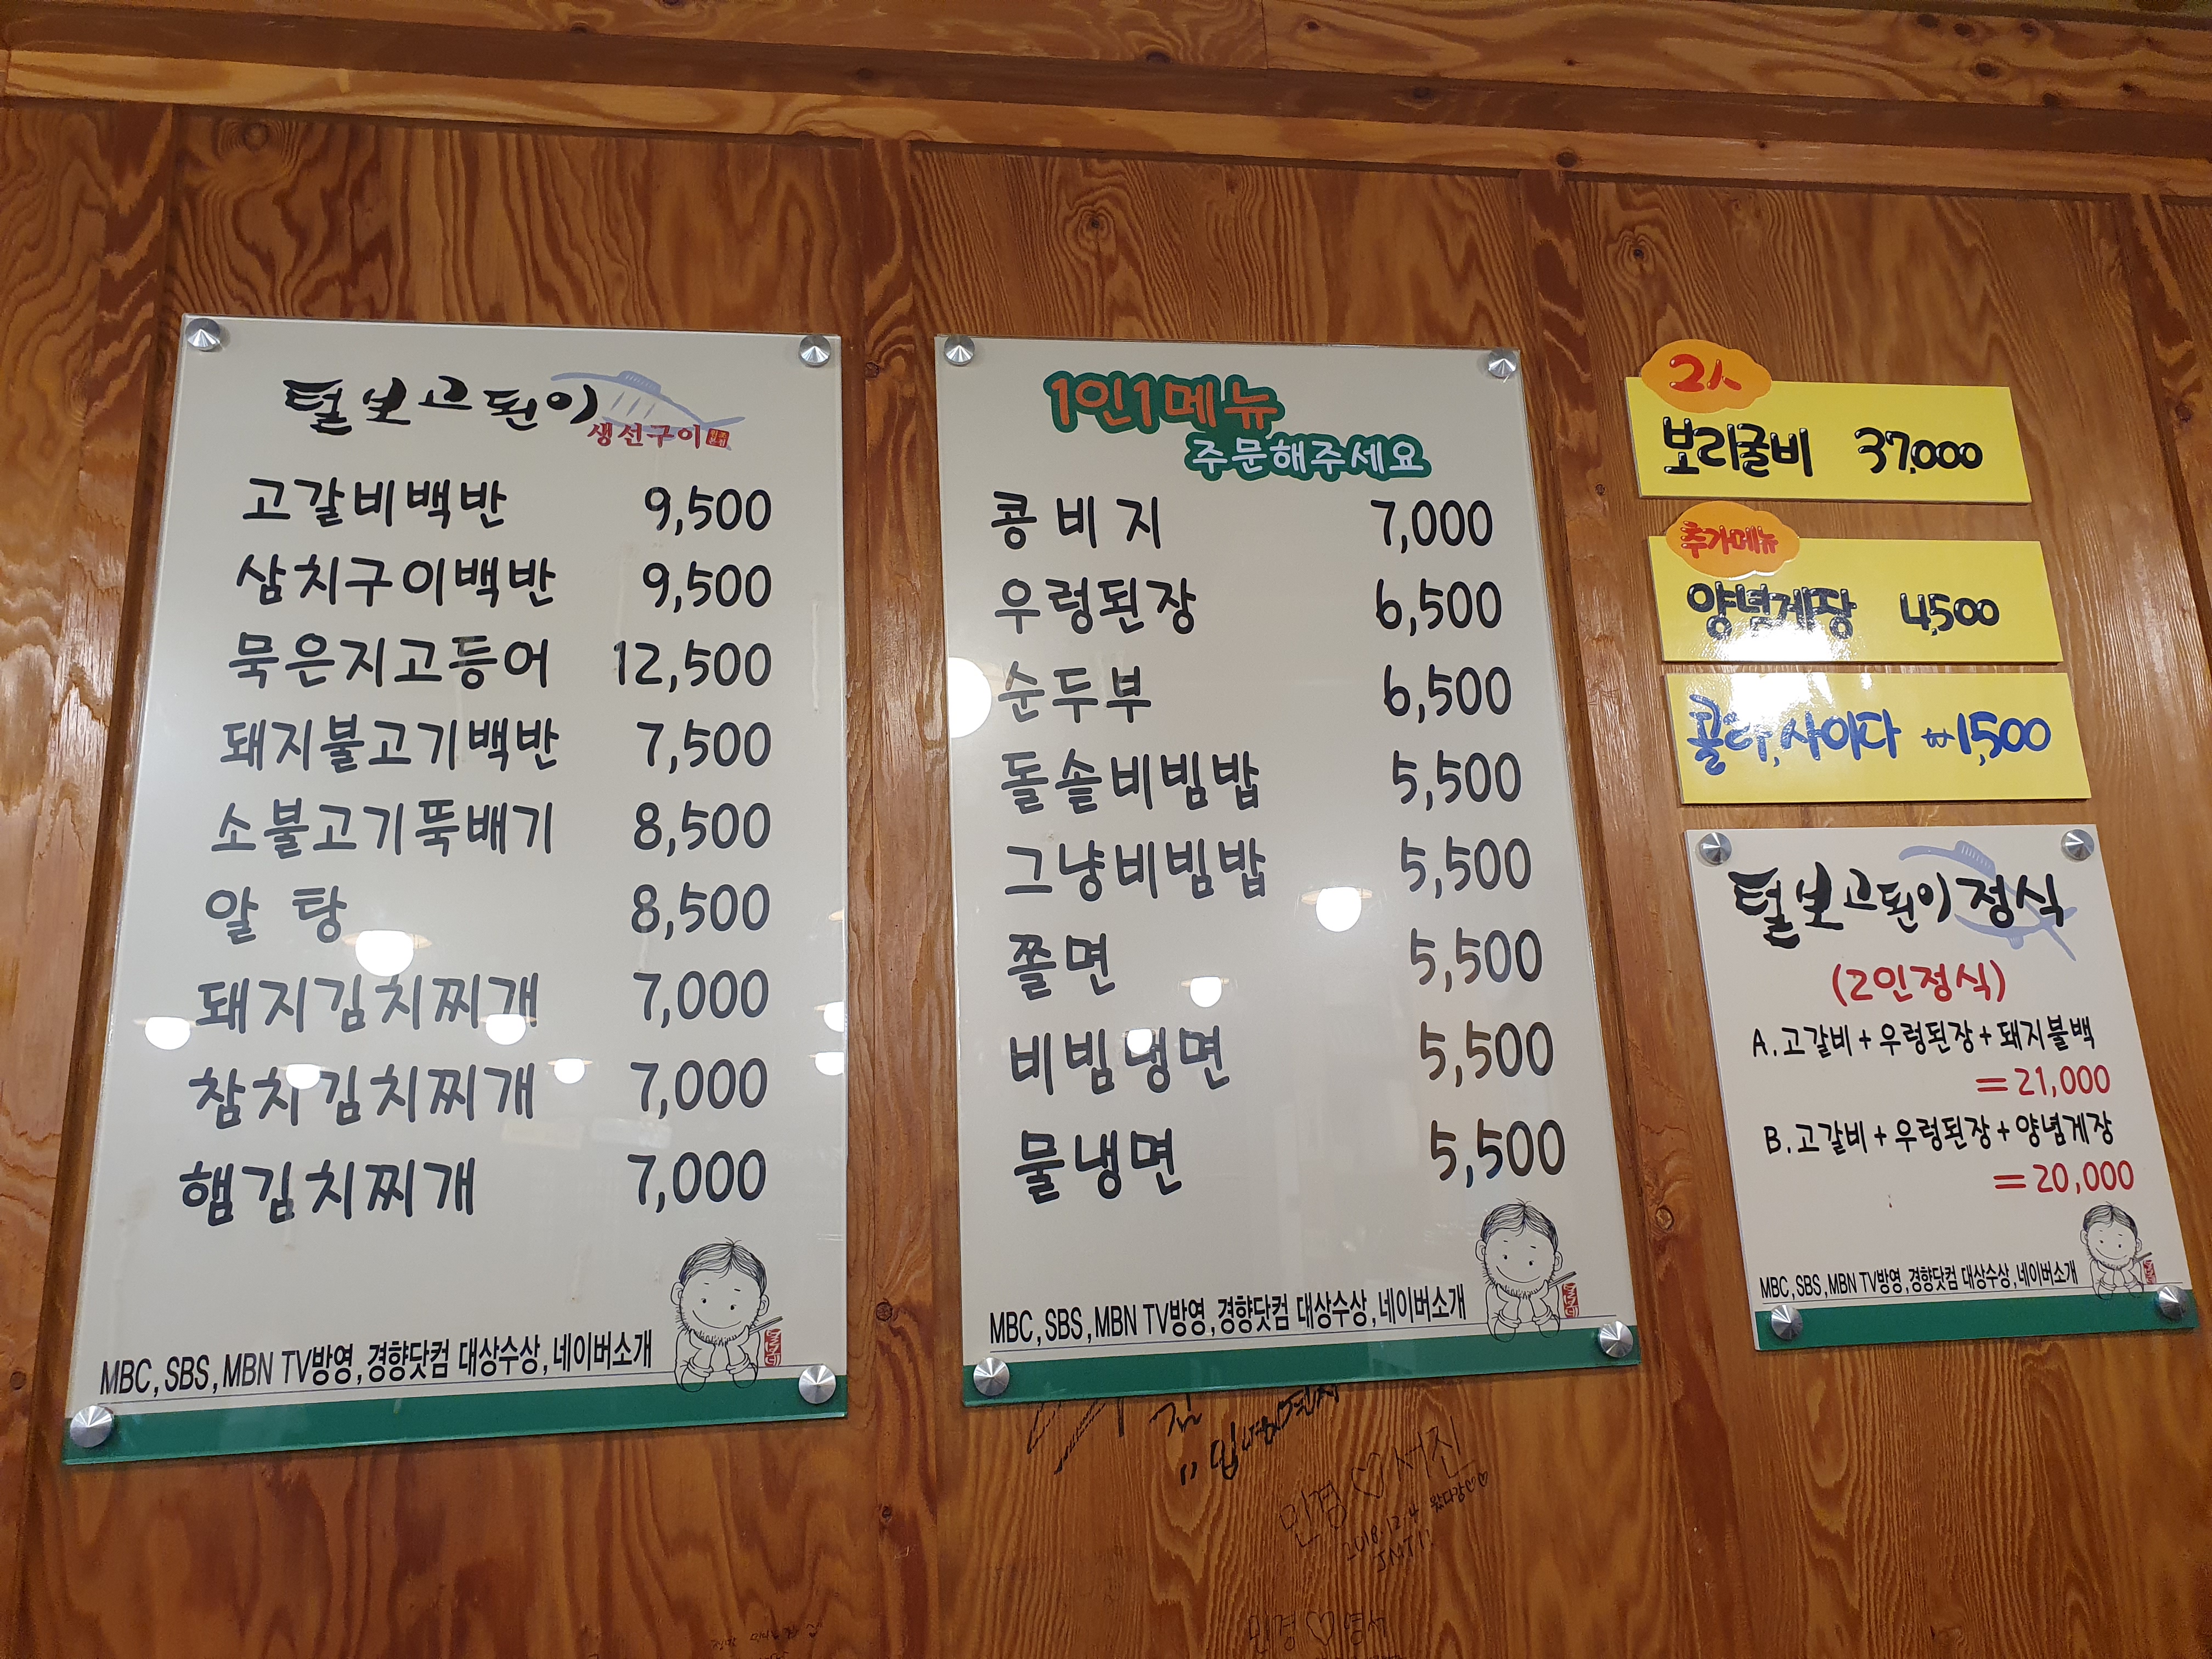 털보고된이
생선구이
고갈비백반 9,500
삼치구이백반 9,500
묵은지고등어 12,500
돼지불고기백반 7,500
소불고기뚝배기 8,500
알 탕 8,500
돼지김치찌개 7,000
참치김치찌개 7,000
햄김치찌개 7,000
MBC, SBS, MBN TV방영, 경향닷컴 대상수상, 네이버소개
1인1메뉴
주문해주세요
콩 비 지 7,000
우렁된장 6,500
순두부 6,500
돌솥비빔밥 5,500
그냥비빔밥 5,500
쫄면 5,500
비빔냉면 5,500
물냉면 5,500
MBC, SBS, MBN TV방영, 경향닷컴 대상수상, 네이버소개
2人
보리굴비 37,000
추가메뉴
양념게장 4,500
콜라, 사이다 ₩1,500
털보고된이 정식
(2인정식)
A. 고갈비 + 우렁된장 + 돼지불백
= 21,000
B. 고갈비 + 우렁된장 + 양념게장
= 20,000
MBC, SBS, MBN TV방영, 경향닷컴 대상수상, 네이버소개
민경♡서진
2018.12.4 왔다감♡♡
JMT!!
민경♡영서